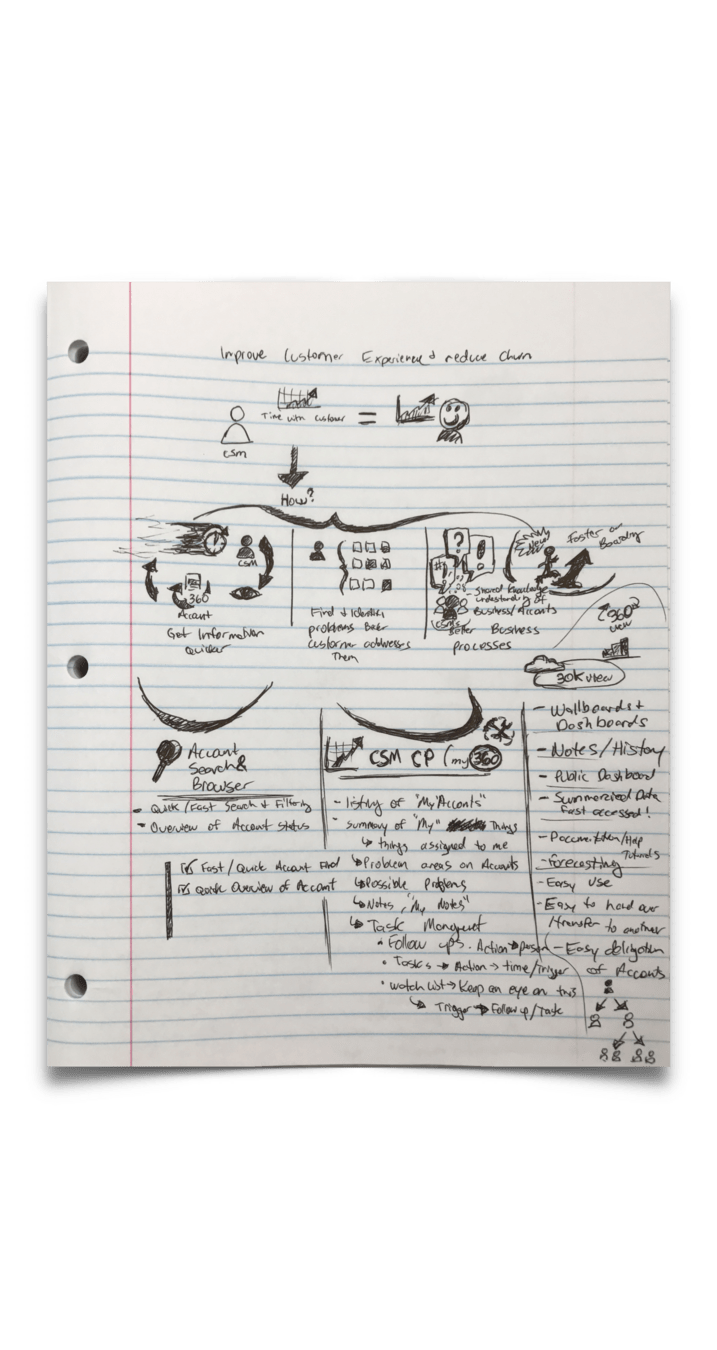 Improve Customer Experience & reduce Churn
Time with Customer
=
CSM
How?
CSM
360
Account
Get Information
Quicker
Find & Identify
problems Before
Customer addresses
Them
?
!
#
Shared Knowledge
Understanding of
Business/Accounts
CSMs
Better Business
processes
New
Faster on
Boarding
360°
view
30K view
Account
Search &
Browser
- Quick/Fast Search & Filtering
- Overview of Account Status
Fast/Quick Account Find
Quick Overview of Account
CSM CP (my 360
- listing of "My Accounts"
- Summary of "My" Things
↳ things assigned to me
↳ Problem areas on Accounts
↳ Possible Problems
↳ Notes, "My Notes"
↳ Task Managment
• Follow ups. Action → person
• Tasks → Action → time/Trigger
• Watch List → Keep an eye on this
↳ Trigger → Follow up/Task
- Wallboards +
Dashboards
- Notes/History
- Public Dashboard
- Summerized Data
Fast accessed!
- Documentation/Help
Tutorials
- Forecasting
- Easy Use
- Easy to hand over
/transfer to another
- Easy deligation
of Accounts